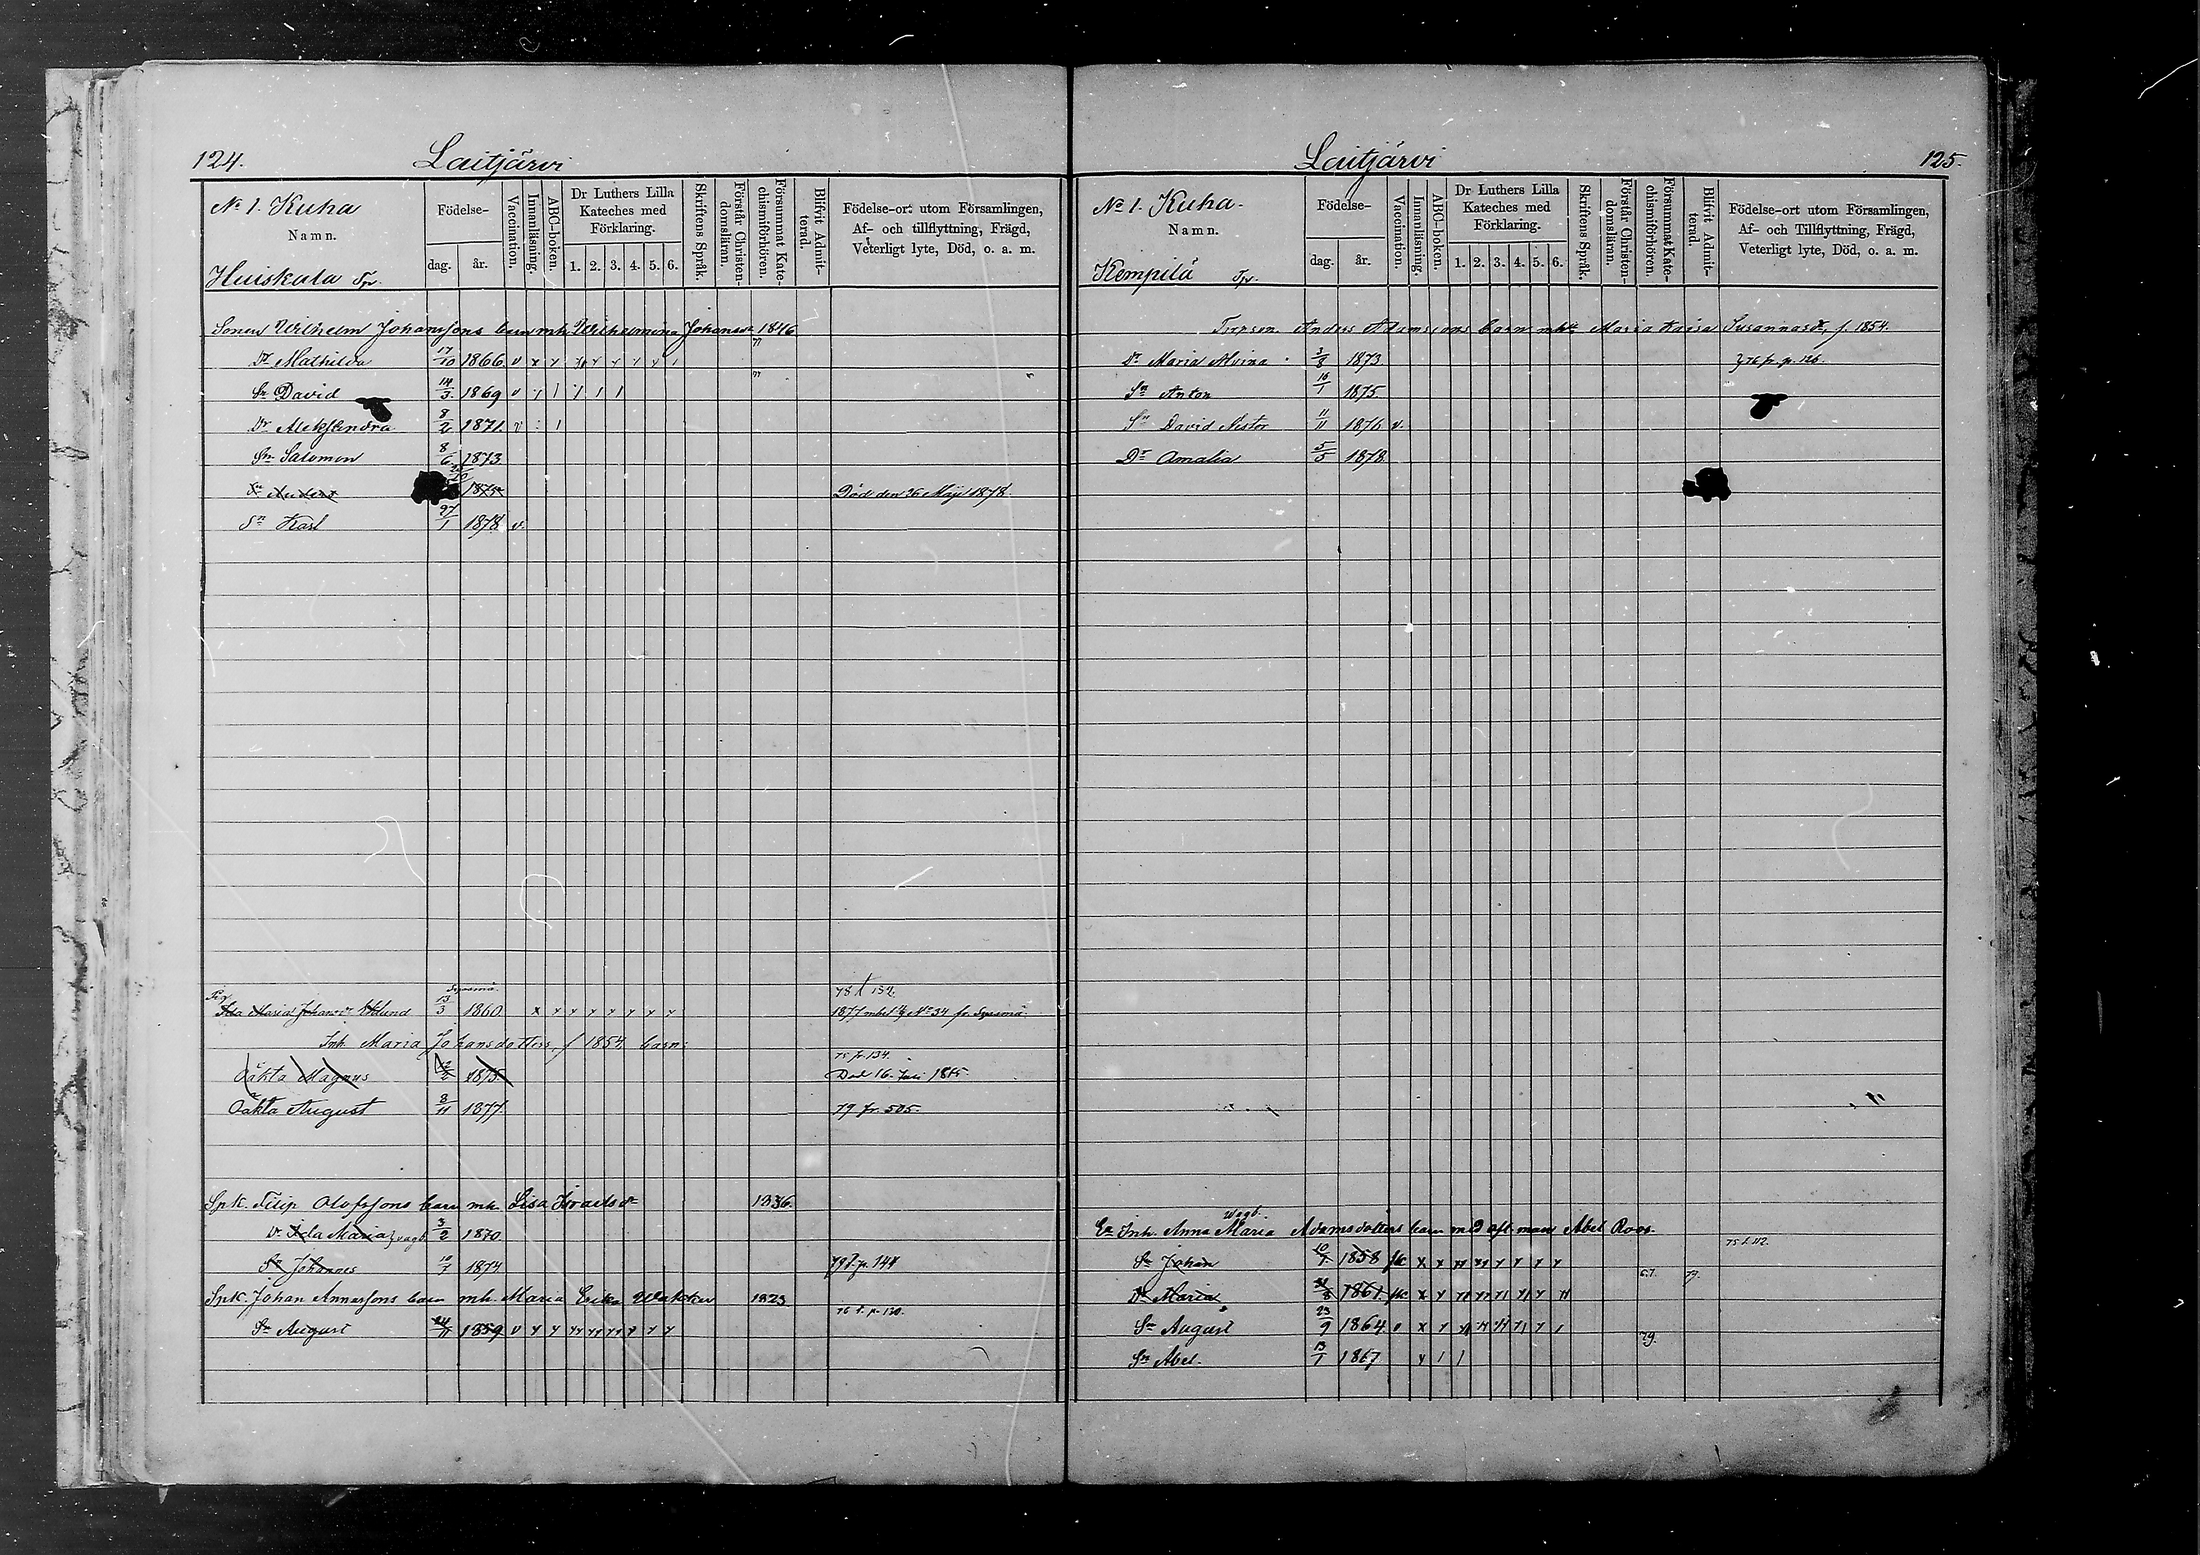 124. Laitjärvi
No 1. Kuha
Namn.
Huiskala Tp.
Födelse-
dag. år.
Vaccination.
Innanläsning.
ABC-boken.
Dr Luthers Lilla Kateches med Förklaring.
1. 2. 3. 4. 5. 6.
Skriftens Språk.
Förstår Christendomsläran.
Försummat Katechismiförhören.
Blifvit Admitterad.
Födelse-ort utom Församlingen,
Af- och tillflyttning, Frägd,
Veterligt lyte, Död, o. a. m.
Sonen Wilhelm Johanssons barn mh. Wilhelmina Johansdr 1846
77
Dr Mathilda 17/10 1866 v x y y y y y y
77
Sn David 14/3 1869 v y 1 1 1 1
Dr Aleksandra 8/2 1871 v 1
Sn Salomon 8/6 1873
Sn Anders 1875 Död den 26 Maji 1878.
Sn Karl 27/1 1878 v.
Sysmä. 78 t 132
Pig. Ida Maria Johansdr 13/3 1860 x y y y y y y y 1877 mbet No 34 fr. Sysmä
Inh. Maria Johansdotters f 1854 barn:
75 fr. 134.
Oäkta Magnus 12/2 1875 Död 16 1875
Oäkta August 3/11 1877 79 fr. 505.
Spk. Filip Olofssons barn mh. Lisa Israelsdr 1836
Dr Ida Maria 3/2 1870
Sn Johannes 10/7 1874 79 t. p. 144
Spk. Johan Annassons barn mh. Maria Erika 1823
76 t. p. 130.
Sn August 24/11 1859 v y y yy yy yy y y y
Laitjärvi 125.
No 1. Kuha.
Namn.
Kempilä Tp.
Födelse-
dag. år.
Vaccination.
Innanläsning.
ABC-boken.
Dr Luthers Lilla Kateches med Förklaring.
1. 2. 3. 4. 5. 6.
Skriftens Språk.
Förstår Christendomsläran.
Försummat Katechismiförhören.
Blifvit Admitterad.
Födelse-ort utom Församlingen,
Af- och Tillflyttning, Frägd,
Veterligt lyte, Död, o. a. m.
Anders Adamssons barn mh. Maria Kaisa Susannasdr, f. 1854.
Dr Maria Alvina 3/8 1873 76 fr. p. 126.
Sn Anton 16/1 1875
Sn David Nestor 11/11 1876 v.
Dr Amalia 5/5 1878
Wagb.
Ea Inh. Anna Maria Adamsdotters barn med afl. man Abel Roos.
75 t. 112.
Sn Johan 10/7 1858 x x y y y y y y
67. 77.
Dr Maria 1861 x y
Sn August 23/9 1864 v x y
79.
Sn Abel. 13/1 1867 y 1 1